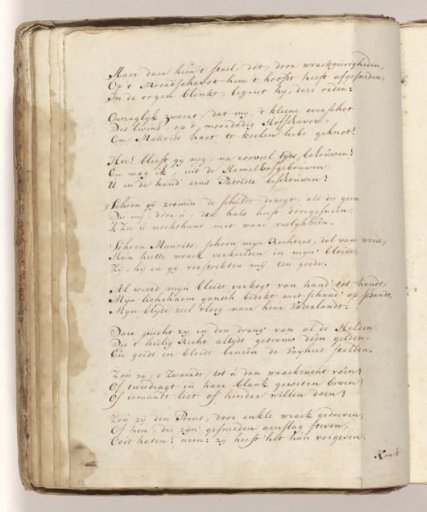 Maer daer hem 't stael, dat, door wraekgierigheden,
Op 't Moordschavot hem 't hooft heeft afgesneden,
In de oogen blinkt, begint hy deze reden:
Ontzaglyk zwaert, dat my 't kleine overschot
Des levens, op 't moordadig Hofschavot,
Om Maurits haet te koelen hebt geknot!
Hoe! blyft gy nog, na zooveel tyds
En mag ik, uit de Hemelhofgebouwen,
U in de hand eens Patriots beschouwen?
Schoon gy zoomin de schult draegt, als die geen
Die my, door u, den hals heeft doorgesneên,
'k Zie u nochthans met ware vrolykheên.
Schoon Maurits, schoon myn Rechters, dol van woede,
Myn hette wraek verkoelden in myn' bloede,
Zy, hy en gy verstrekten my ten goede.
Al wierd myn bloedt verkogt van hand tot hand,
Myn lichchaem gansch bedekt met schand' op schande,
Myn blyde ziel vloog naer haer Vaderlandt.
Daer juicht zy in den drang van al de Helden
Die 't heilig Recht altydt getrouw deên gelden,
En goedt en bloedt benêen de Vryheit stelden.
Zou zy, o Zwaerdt, tot u den wraekzucht voên?
Of tweedragt in haer blank geweten broen?
Of iemandt leet of hinder willen doen?
Zou zy den Prins, door enkle wraek gedreven,
Of hen, die zyn' gesmeden aenslag stven,
Ooit haten? neen: zy heeft het hun vergeven.
Kon't